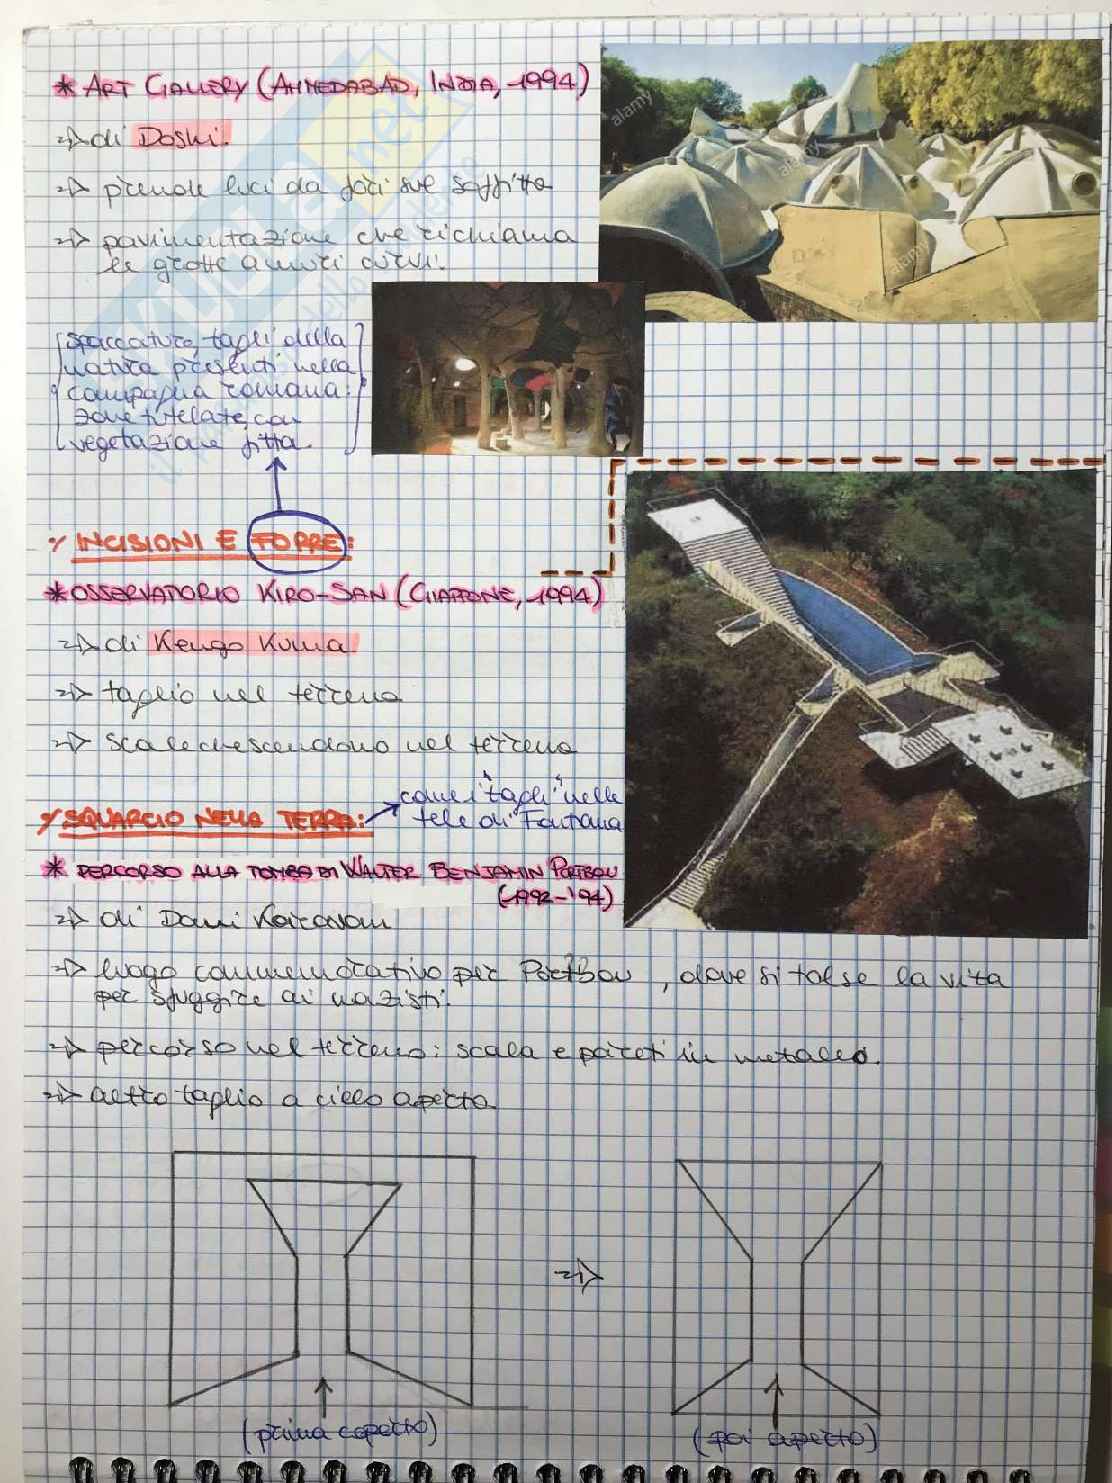 * ART GALLERY (AHMEDABAD, INDIA, 1994)
⇒ di Doshi.
⇒ piccole luci da fori sul soffitto
⇒ pavimentazione che richiama
le grotte a muri curvi.
spaccature, tagli della
natura presenti nella
campagna romana:
zone tutelate, con
vegetazione fitta.
alamy
alamy
alamy
alamy
alamy
INCISIONI E FORRE:
* OSSERVATORIO KIRO-SAN (GIAPPONE, 1994)
⇒ di Kengo Kuma
⇒ taglio nel terreno
⇒ scale che scendono nel terreno
SQUARCIO NELLA TERRA: → come i "tagli" nelle
tele di Fontana
* PERCORSO ALLA TOMBA DI WALTER BENJAMIN PORTBOU
(1992-'94)
⇒ di Dani Karavan
⇒ luogo commemorativo per PortBou, dove si tolse la vita
per sfuggire ai nazisti.
⇒ percorso nel terreno: scala e pareti in metallo.
⇒ altro taglio a cielo aperto.
⇒
(prima coperto)
(poi aperto)